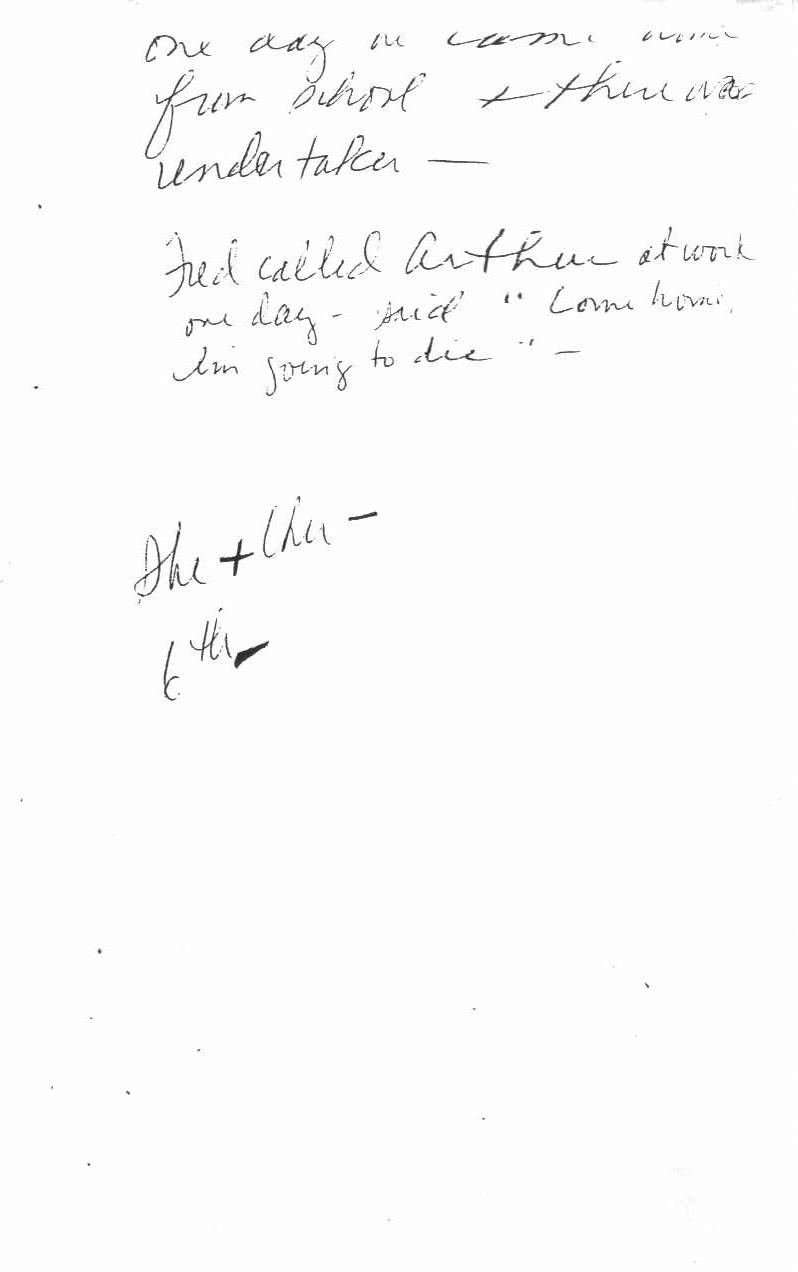 one day he came home
from school + there was
undertaker —
Fred called Arthur at work
one day - said " Come home,
I'm going to die " —
She + Cher -
6th